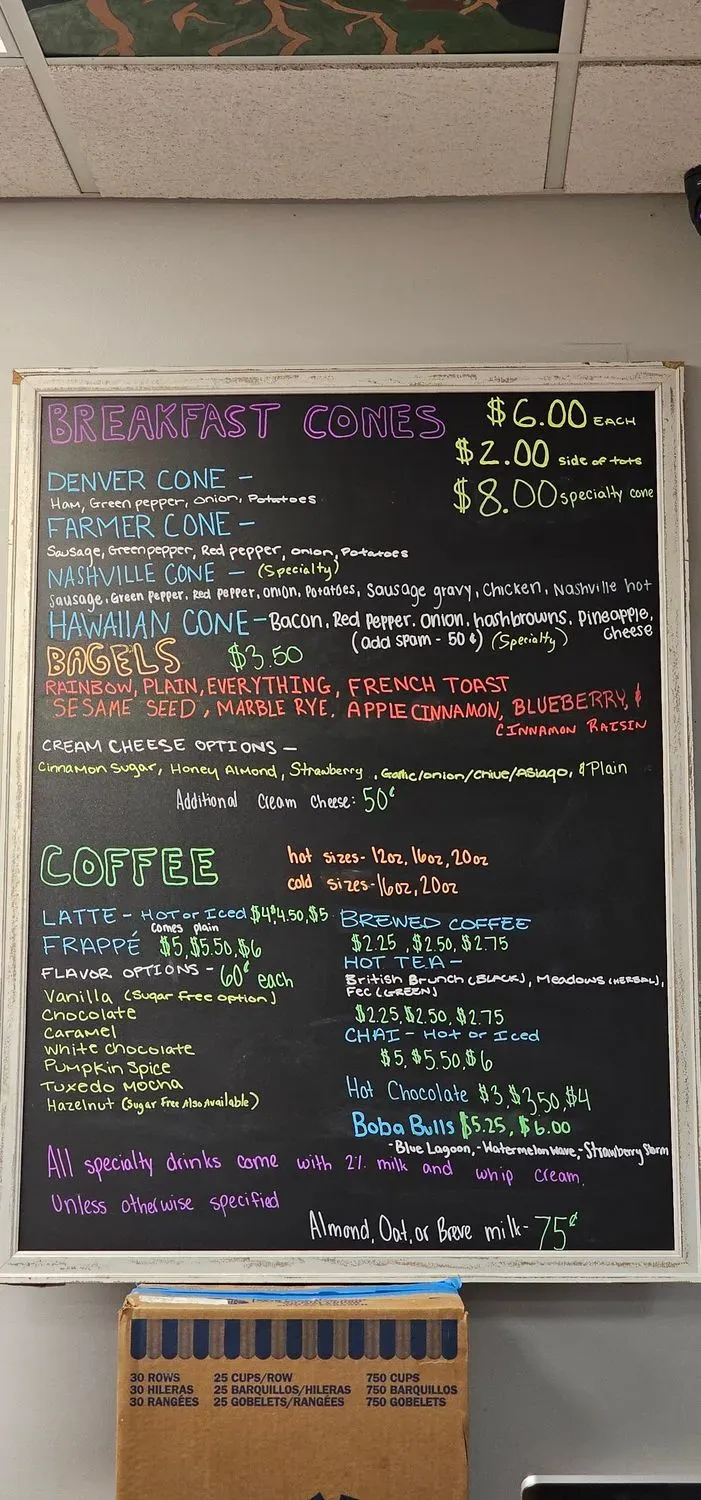 BREAKFAST CONES $6.00 EACH
$2.00 side of tots
DENVER CONE - $8.00 specialty cone
Ham, Green pepper, onion, Potatoes
FARMER CONE -
Sausage, Green pepper, Red pepper, onion, Potatoes
NASHVILLE CONE - (Specialty)
Sausage, Green Pepper, Red pepper, onion, Potatoes, Sausage gravy, Chicken, Nashville hot
HAWAIIAN CONE - Bacon, Red Pepper, onion, hashbrowns, Pineapple,
(add spam - 50¢) (Specialty) Cheese
BAGELS $3.50
RAINBOW, PLAIN, EVERYTHING, FRENCH TOAST
SESAME SEED, MARBLE RYE, APPLE CINNAMON, BLUEBERRY, &
CINNAMON RAISIN
CREAM CHEESE OPTIONS -
Cinnamon Sugar, Honey Almond, Strawberry, Garlic/onion/chive/Asiago, & Plain
Additional Cream Cheese: 50¢
COFFEE
hot sizes - 12oz, 16oz, 20oz
cold sizes - 16oz, 20oz
LATTE - Hot or Iced $4, $4.50, $5
comes plain
FRAPPÉ $5, $5.50, $6
FLAVOR OPTIONS - 60¢ each
Vanilla (Sugar Free option)
Chocolate
Caramel
White Chocolate
Pumpkin Spice
Tuxedo Mocha
Hazelnut (Sugar Free Also Available)
BREWED COFFEE
$2.25, $2.50, $2.75
HOT TEA -
British Brunch (BLACK), Meadows (HERBAL),
Fec (GREEN)
$2.25, $2.50, $2.75
CHAI - Hot or Iced
$5, $5.50, $6
Hot Chocolate $3, $3.50, $4
Boba Bulls $5.25, $6.00
- Blue Lagoon, - Watermelon wave, - Strawberry Storm
All specialty drinks come with 2% milk and whip cream.
Unless otherwise specified
Almond, Oat, or Breve milk - 75¢
30 ROWS 25 CUPS/ROW 750 CUPS
30 HILERAS 25 BARQUILLOS/HILERAS 750 BARQUILLOS
30 RANGÉES 25 GOBELETS/RANGÉES 750 GOBELETS